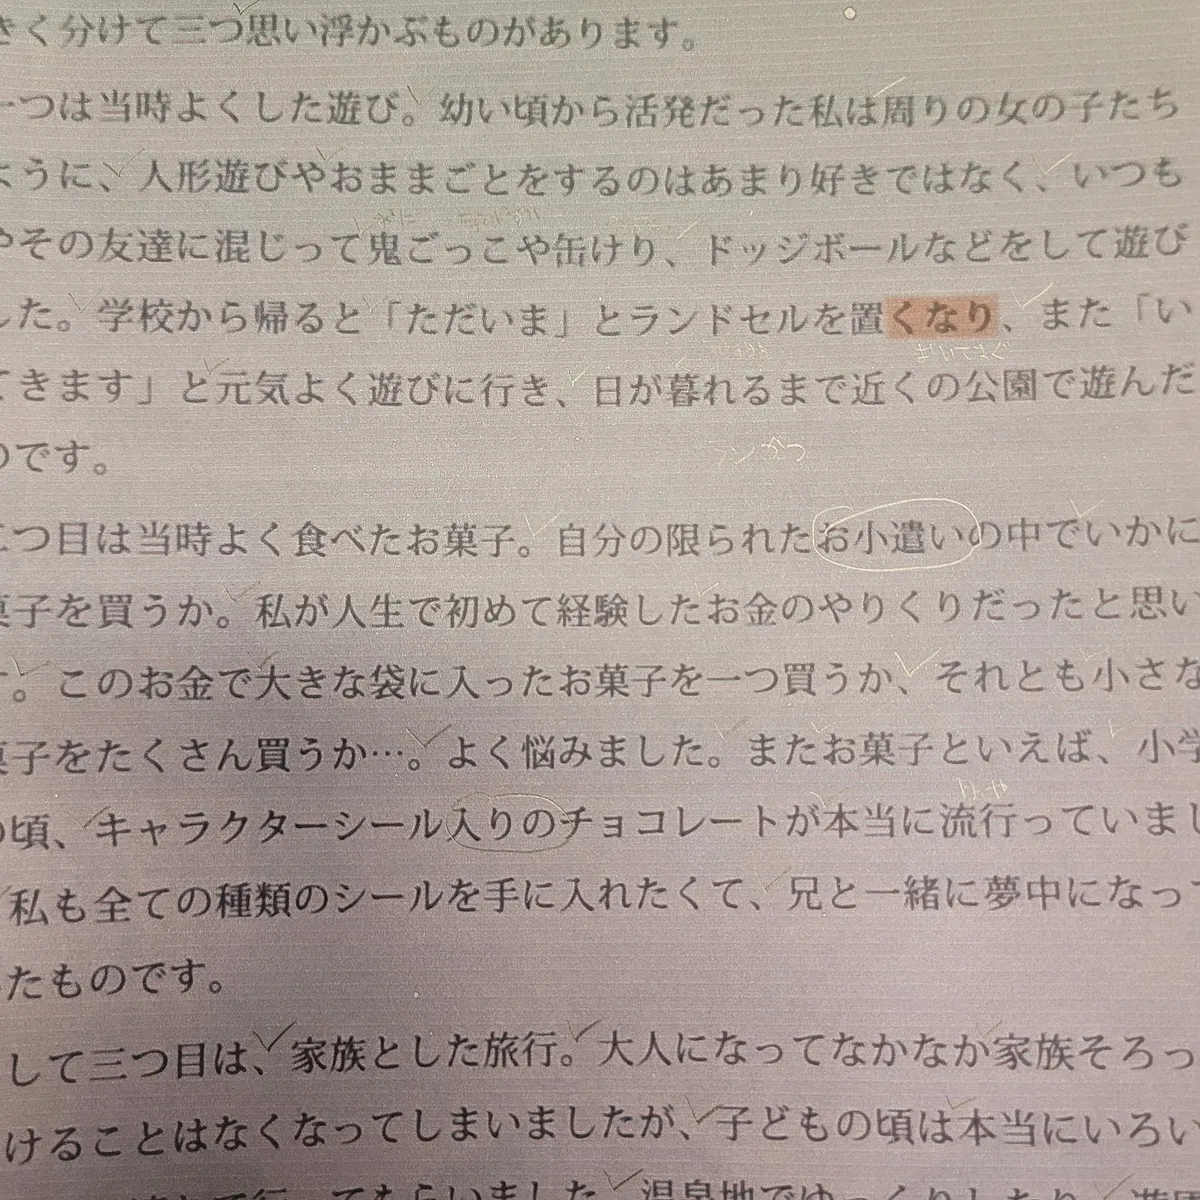 きく分けて三つ思い浮かぶものがあります。
一つは当時よくした遊び。幼い頃から活発だった私は周りの女の子たち
ように、人形遊びやおままごとをするのはあまり好きではなく、いつも
やその友達に混じって鬼ごっこや缶けり、ドッジボールなどをして遊び
した。学校から帰ると「ただいま」とランドセルを置くなり、また「い
てきます」と元気よく遊びに行き、日が暮れるまで近くの公園で遊んだ
のです。
二つ目は当時よく食べたお菓子。自分の限られたお小遣いの中でいかに
菓子を買うか。私が人生で初めて経験したお金のやりくりだったと思い
す。このお金で大きな袋に入ったお菓子を一つ買うか、それとも小さな
菓子をたくさん買うか…。よく悩みました。またお菓子といえば、小学
の頃、キャラクターシール入りのチョコレートが本当に流行っていまし
私も全ての種類のシールを手に入れたくて、兄と一緒に夢中になって
たものです。
して三つ目は、家族とした旅行。大人になってなかなか家族そろっ
けることはなくなってしまいましたが、子どもの頃は本当にいろい
行ってもらいました。温泉地でゆっくりしたり、遊園